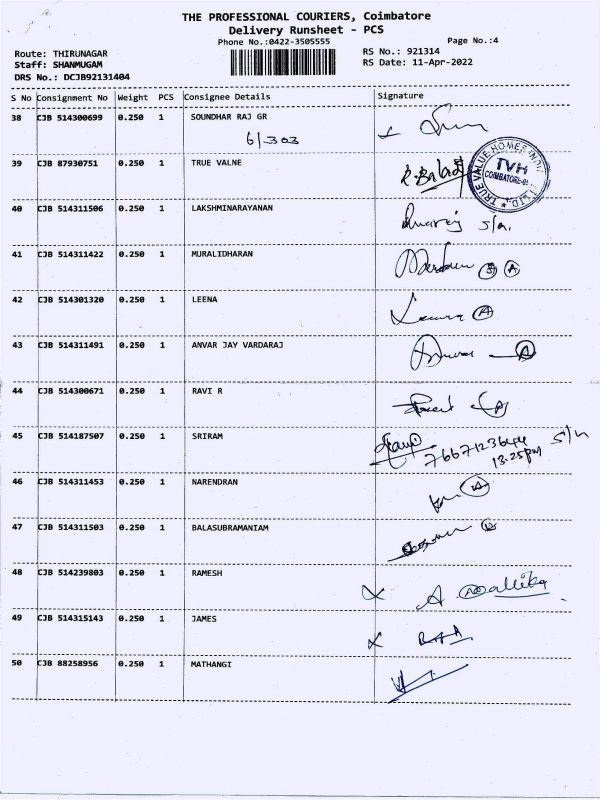 THE PROFESSIONAL COURIERS, Coimbatore
Delivery Runsheet - PCS
Phone No.:0422-3505555
Page No.:4
Route: THIRUNAGAR
RS No.: 921314
Staff: SHANMUGAM
RS Date: 11-Apr-2022
DRS No.: DCJB92131404
S No Consignment No Weight PCS Consignee Details Signature
38 CJB 514300699 0.250 1 SOUNDHAR RAJ GR
6/303
39 CJB 87930751 0.250 1 TRUE VALNE R.Balaji
TRUE VALUE HOMES
TVH
COIMBATORE
40 CJB 514311506 0.250 1 LAKSHMINARAYANAN
41 CJB 514311422 0.250 1 MURALIDHARAN
42 CJB 514301320 0.250 1 LEENA
43 CJB 514311491 0.250 1 ANVAR JAY VARDARAJ
44 CJB 514300671 0.250 1 RAVI R
45 CJB 514187507 0.250 1 SRIRAM
13.25pm
46 CJB 514311453 0.250 1 NARENDRAN
47 CJB 514311503 0.250 1 BALASUBRAMANIAM
48 CJB 514239803 0.250 1 RAMESH
A Mallika
49 CJB 514315143 0.250 1 JAMES
50 CJB 88258956 0.250 1 MATHANGI